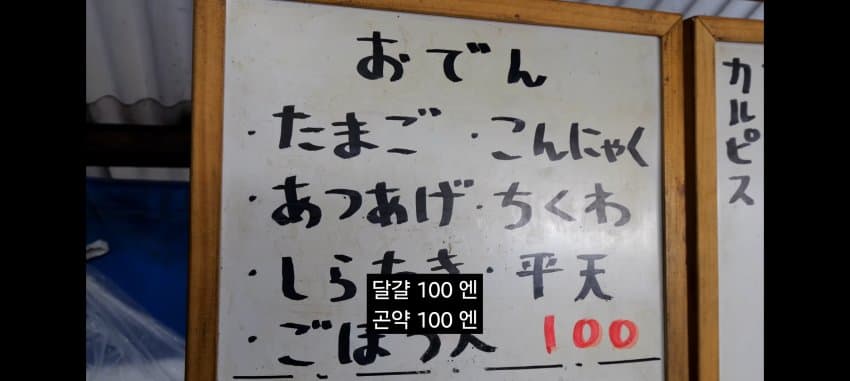 おでん
・たまご ・こんにゃく
・あつあげ ・ちくわ
・しらたき ・平天
・ごぼう天 100
カルピス
달걀 100 엔
곤약 100 엔